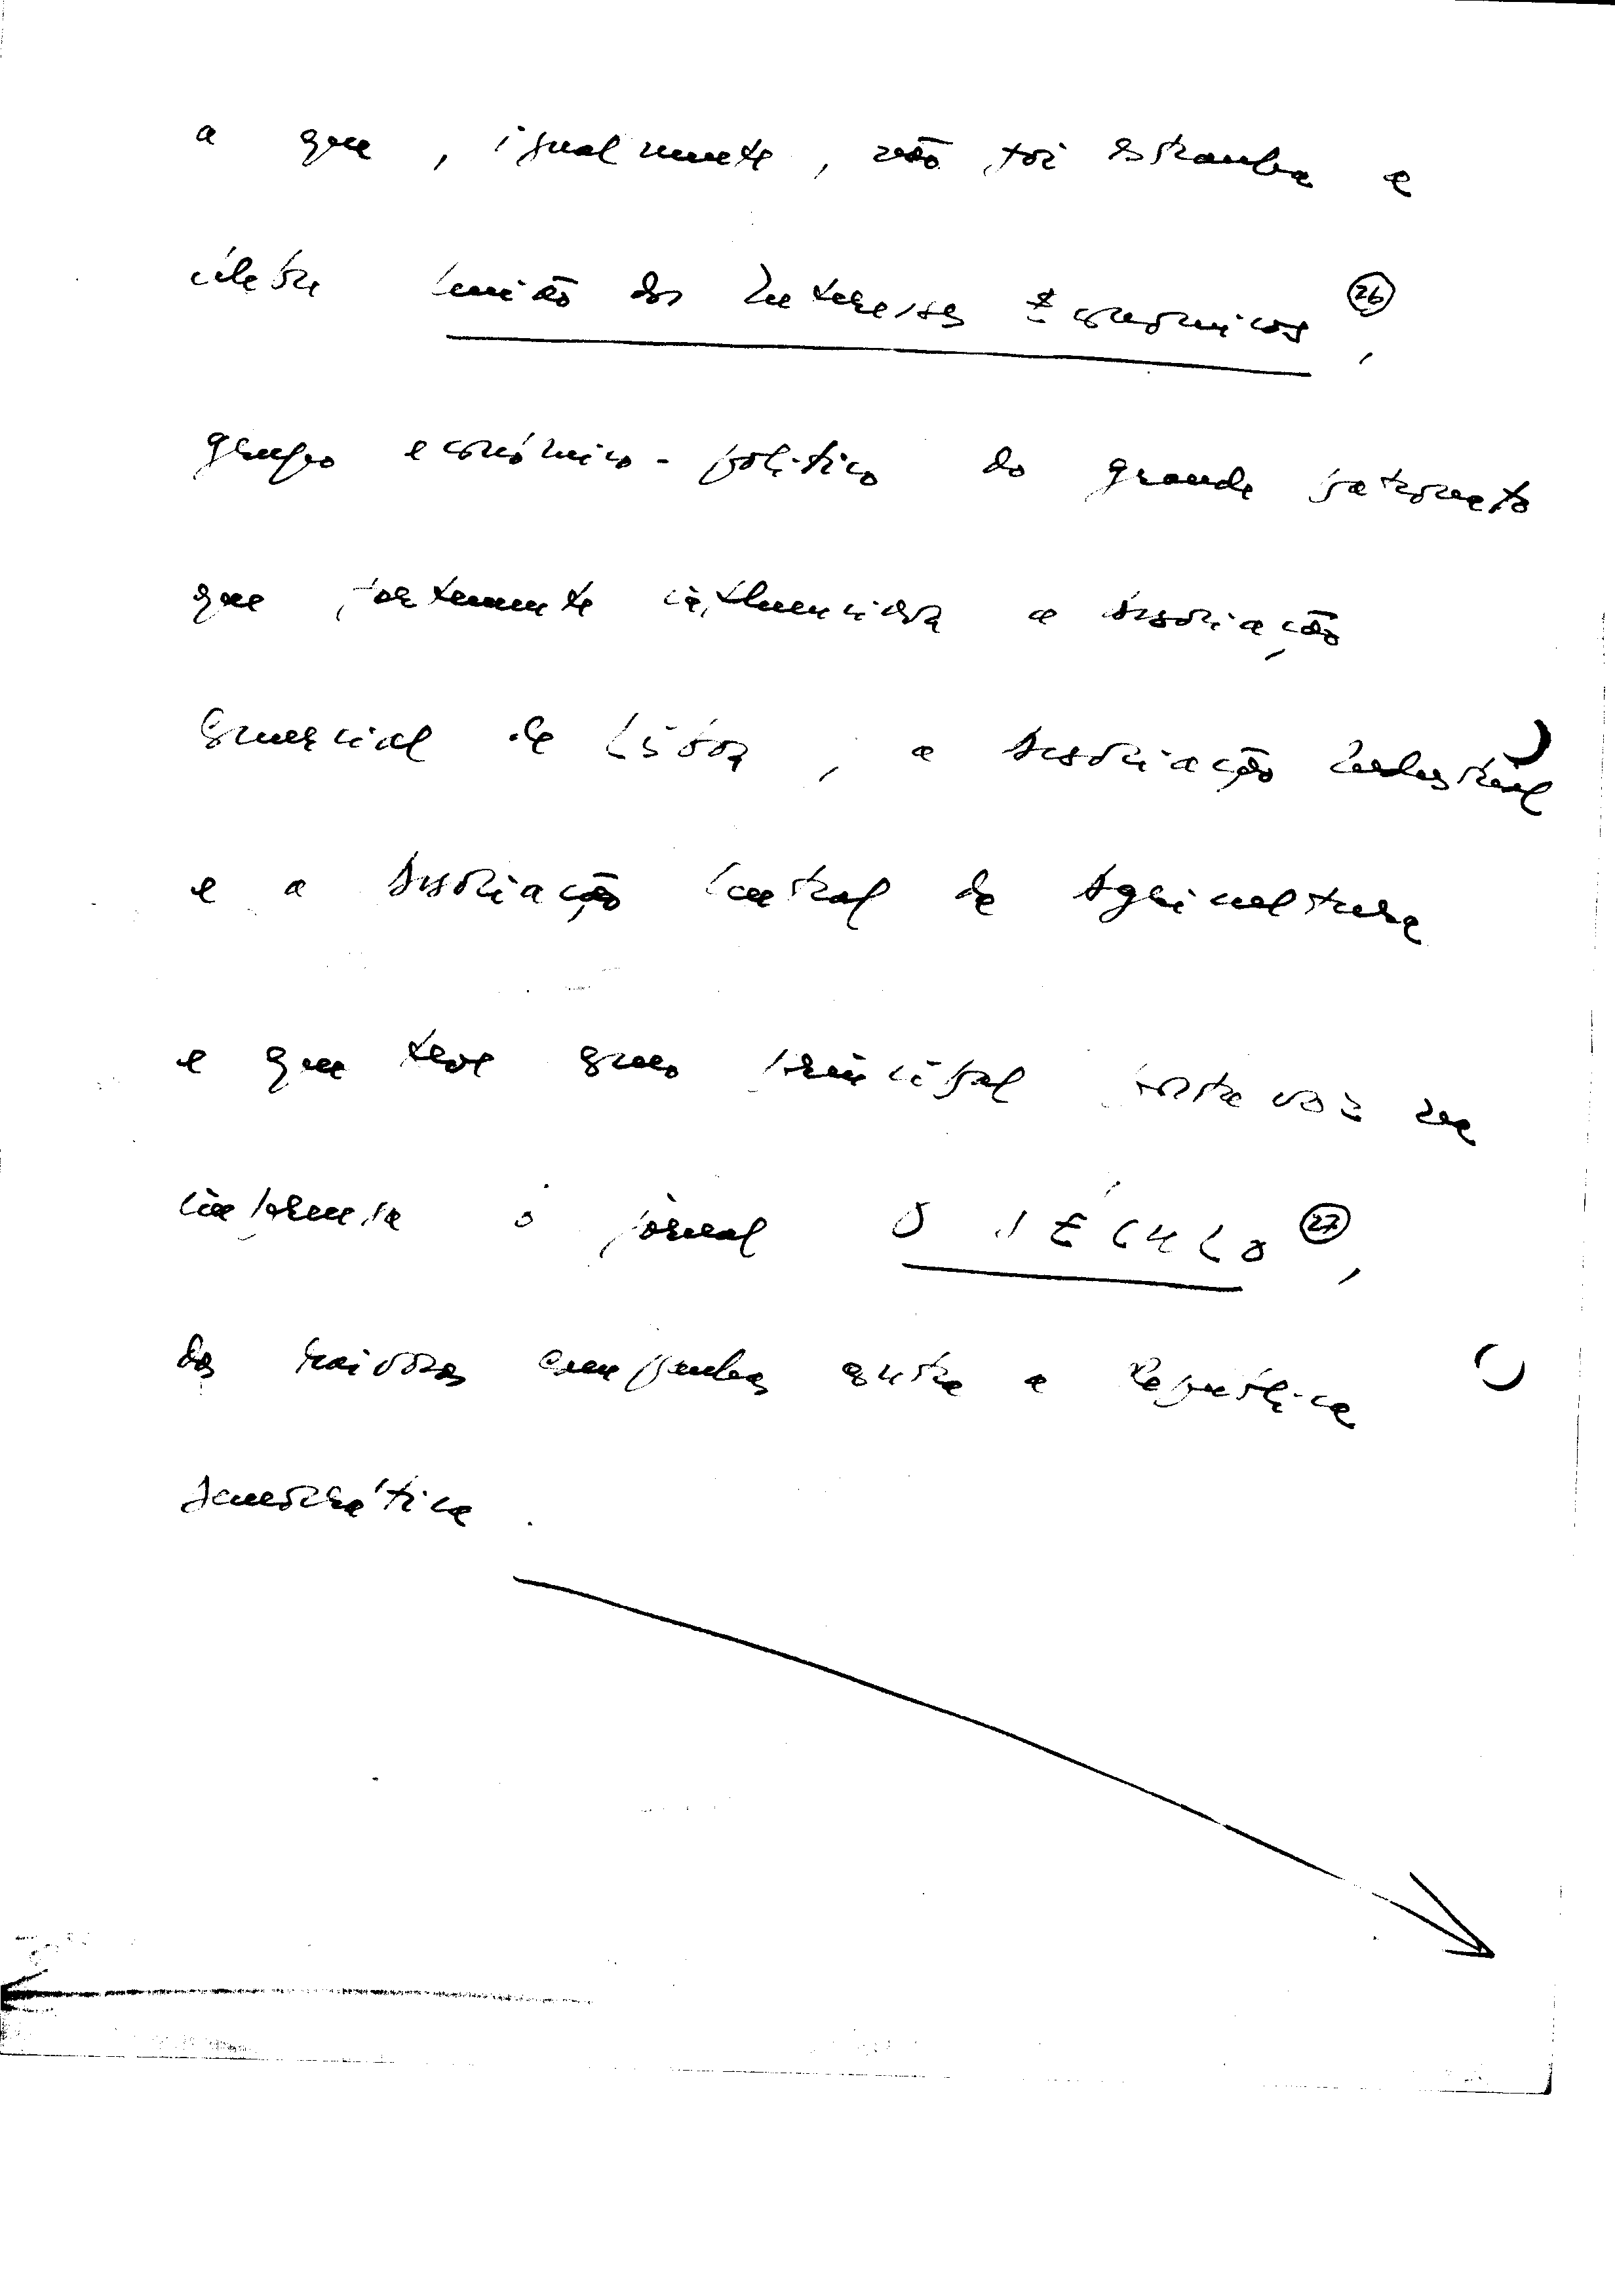 a que, igualmente, não foi estranha a
célebre União dos Interesses Económicos (26),
grupo económico-político do grande patronato
que fortemente influenciava a Associação
Comercial de Lisboa, a Associação Industrial
e a Associação Central de Agricultura
e que teve como principal porta voz na
imprensa o jornal O SÉCULO (27),
das raivosas campanhas contra a República
democrática.